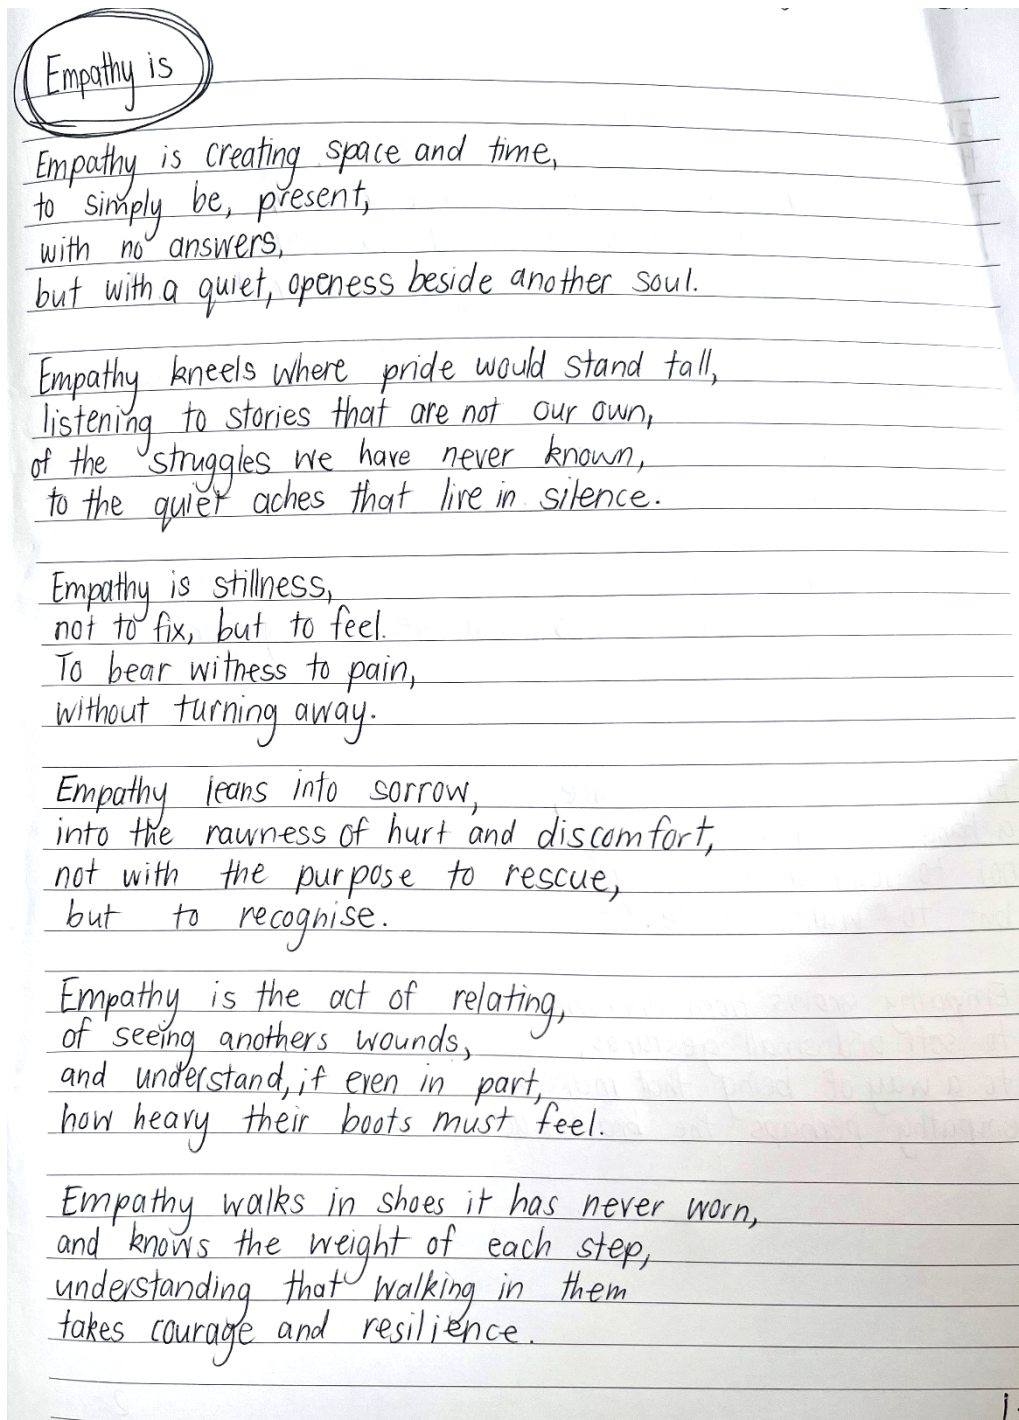 Empathy is
Empathy is creating space and time,
to simply be, present,
with no answers,
but with a quiet, openess beside another soul.
Empathy kneels where pride would stand tall,
listening to stories that are not our own,
of the struggles we have never known,
to the quiet aches that live in silence.
Empathy is stillness,
not to fix, but to feel.
To bear witness to pain,
without turning away.
Empathy leans into sorrow,
into the rawness of hurt and discomfort,
not with the purpose to rescue,
but to recognise.
Empathy is the act of relating,
of seeing anothers wounds,
and understand, if even in part,
how heavy their boots must feel.
Empathy walks in shoes it has never worn,
and knows the weight of each step,
understanding that walking in them
takes courage and resilience.